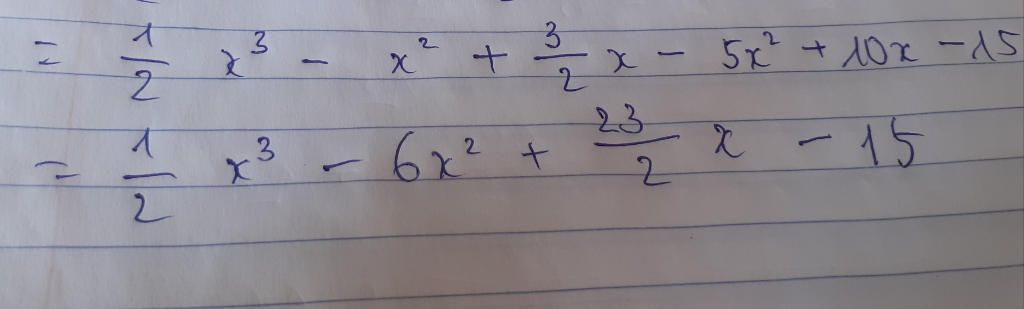 = 1/2 x³ - x² + 3/2 x - 5x² + 10x - 15
= 1/2 x³ - 6x² + 23/2 x - 15